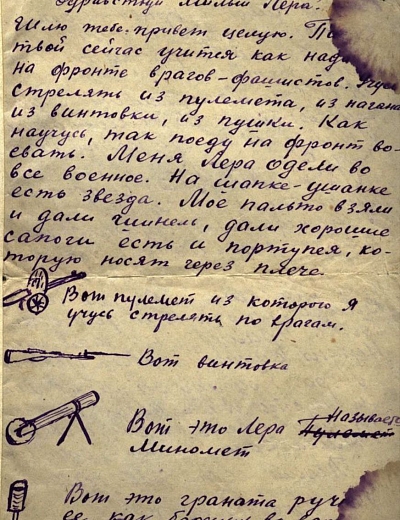 Здравствуй Милый Лера.
Шлю тебе привет целую.
твой сейчас учится как
на фронте врагов-фашистов.
стрелять из пулемета, из нагана
из винтовки, из пушки. Как
научусь, так поеду на фронт во-
евать. Меня Лера одели во
все военное. На шапке-ушанке
есть звезда. Мое пальто взяли
и дали шинель, дали хорошие
сапоги есть и портупея, ко-
торую носят через плечо
Вот пулемет из которого я
учусь стрелять по врагам.
Вот винтовка
Вот это Лера Называется
Миномет
Вот это граната
ее как